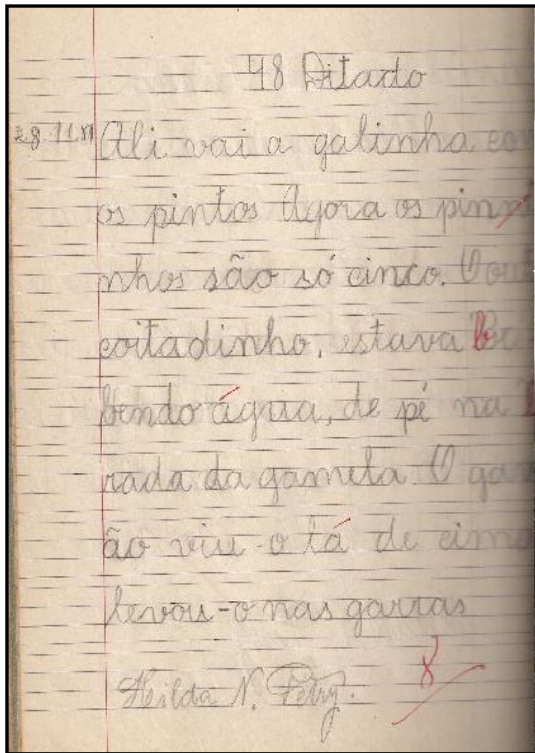 48 Ditado
28.11. Ali vai a galinha co
os pintos Agora os pin
nhos são só cinco. O ou
coitadinho, estava be
bendo água, de pé na b
rada da gamela O ga
ão viu-o lá de cima
levou-o nas garras
Hilda N. Petry. 8